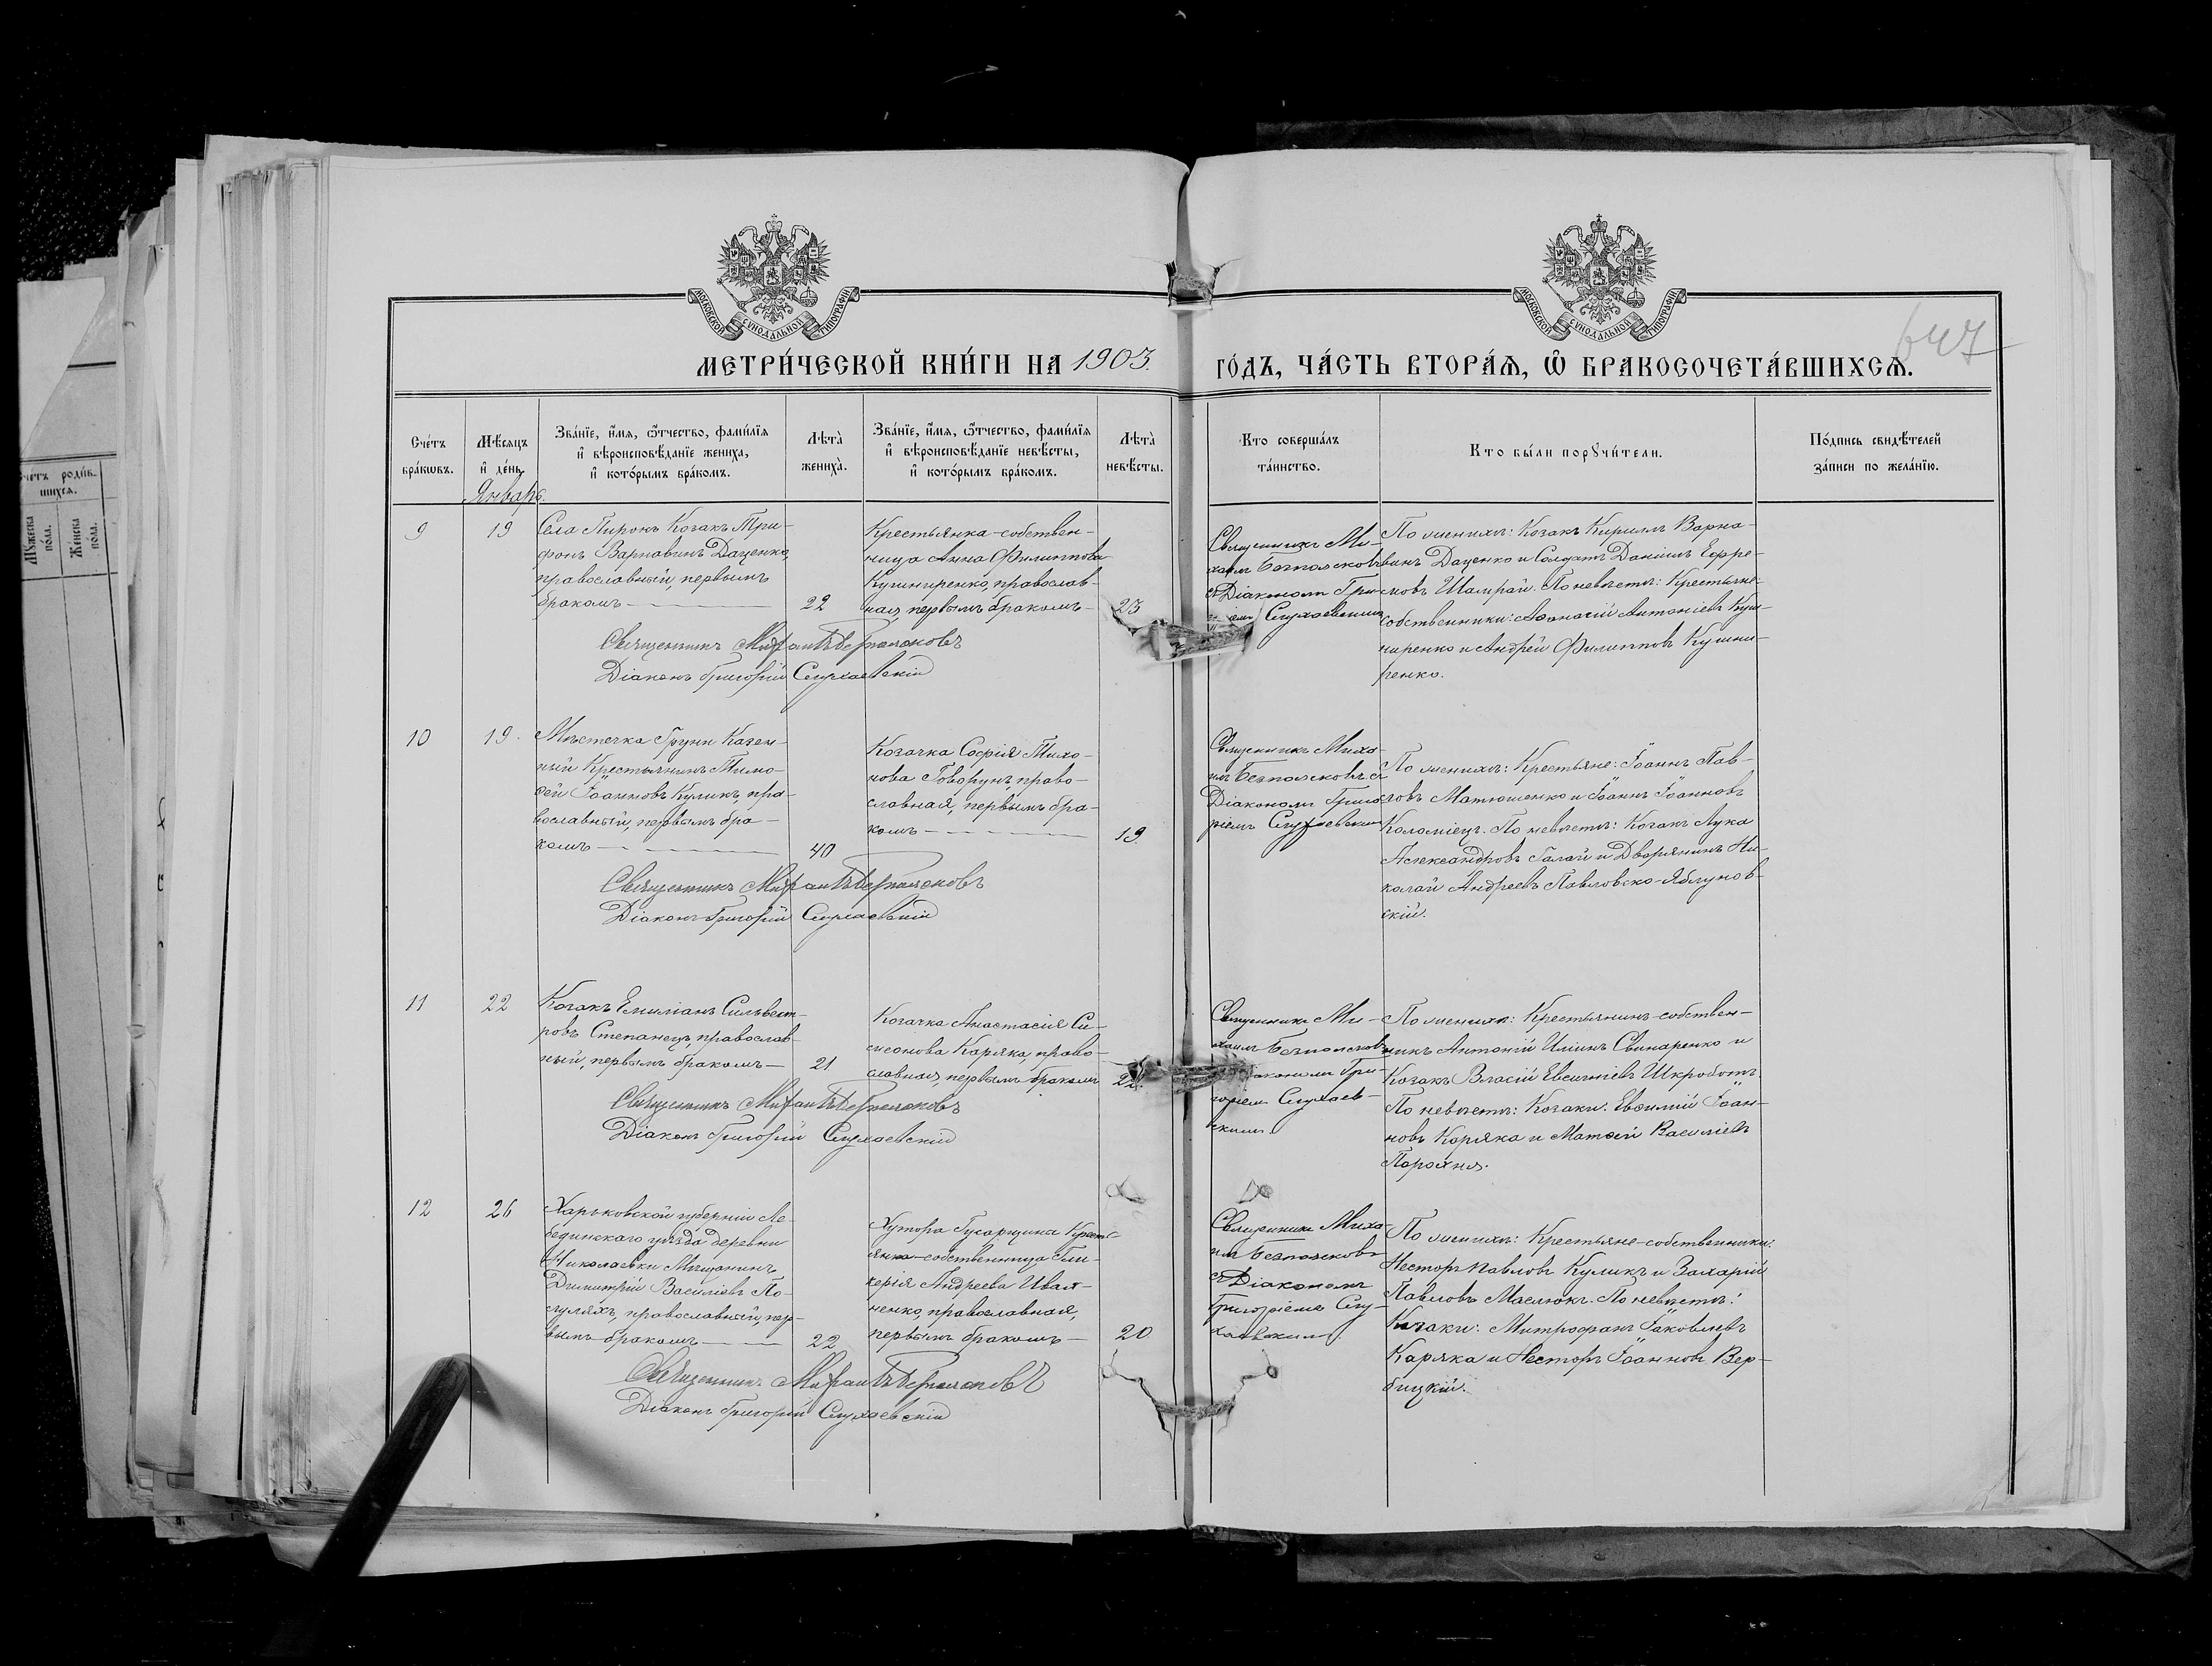 МОСКОВСКОЙ СУНОДАЛЬНОЙ ТИПОГРАФІИ
МОСКОВСКОЙ СУНОДАЛЬНОЙ ТИПОГРАФІИ
МЕТРИ́ЧЕСКОЙ КНИ́ГИ НА 1903.
ГО́ДЪ, ЧА́СТЬ ВТОРА́Ѧ, Ѡ҆ БРАКОСОЧЕТА́ВШИХСѦ.
647
Сче́тъ
бра́кѡвъ.
Мѣ́сяцъ
и҆ де́нь.
Январь.
Зва́нїе, и҆́мя, ѻ҆́тчество, фами́лїя
и҆ вѣроисповѣ́данїе жениха,
и҆ кото́рымъ бра́комъ.
Лѣта̀
жениха̀.
Зва́нїе, и҆́мя, ѻ҆́тчество, фами́лїя
и҆ вѣроисповѣ́данїе невѣ́сты,
и҆ кото́рымъ бра́комъ.
Лѣта̀
невѣ́сты.
Кто соверша́лъ
та́инство.
Кто бы́ли порꙋчи́тели.
По́дпись свидѣ́телей
за́писи по жела́нїю.
9
19
Села Пирокъ Козакъ Три-
фонъ Варнавинъ Даценко,
православный, первымъ
бракомъ
22
Крестьянка-собствен-
ница Анна Филиппова
Кушниренко, православ-
ная, первымъ бракомъ
23
Священникъ Ми-
хаилъ Безпалсковъ
съ Діакономъ Гри-
Слухаевскимъ
По женихѣ: Козакъ Кириллъ Варна-
винъ Даценко и Солдатъ Даніилъ Ефре-
мовъ Шамрай. По невѣстѣ: Крестьяне-
собственники: Аѳанасій Антоніевъ Куш-
ниренко и Андрей Филипповъ Кушни-
ренко.
Священникъ Михаилъ
Діаконъ Григорій Слухаевскій
10
19.
Мѣстечка Груни Казен-
ный Крестьянинъ Тимо-
ѳей Іоанновъ Куликъ, пра-
вославный, первымъ бра-
комъ
40
Козачка Софія Тихо-
нова Говорунъ, право-
славная, первымъ бра-
комъ
19.
Священникъ Миха-
илъ съ
Діакономъ Григо-
ріемъ Слухаевскимъ
По женихѣ: Крестьяне: Іоаннъ Пав-
ловъ Матюшенко и Іоаннъ Іоанновъ
Коломіецъ. По невѣстѣ: Козакъ Лука
Александровъ Галай и Дворянинъ Ни-
колай Андреевъ Павловско-Яблунов-
скій.
Священникъ Михаилъ
Діаконъ Григорій Слухаевскій
11
22
Козакъ Емиліанъ Сильвест-
ровъ Степанецъ, православ-
ный, первымъ бракомъ
21
Козачка Анастасія Си-
меонова Каряка, право-
славная, первымъ бракомъ
Священникъ Ми-
хаилъ
Діакономъ Гри-
горіемъ Слухаев-
скимъ.
По женихѣ: Крестьянинъ-собствен-
никъ Антоній Иліинъ Свинаренко и
Козакъ Власій Евѳиміевъ Шкроботъ.
По невѣстѣ: Козаки: Евѳимій Іоан-
новъ Каряка и Матѳей Василіевъ
Священникъ Михаилъ
Діаконъ Григорій Слухаевскій
12
26
Харьковской губерніи Ле-
бединскаго уѣзда деревни
Николаевки Мѣщанинъ
Димитрій Василіевъ По-
православный, пер-
вымъ бракомъ
22
Хутора Гусарщина Кресть-
янка-собственница Гли-
керія Андреева Иват-
ченко, православная,
первымъ бракомъ
20
Священникъ Миха-
илъ
съ Діакономъ
Григоріемъ Слу-
хаевскимъ.
По женихѣ: Крестьяне-собственники:
Несторъ Павловъ Куликъ и Захарій
Павловъ Маслюкъ. По невѣстѣ:
Козаки: Митрофанъ Іаковлевъ
Каряка и Несторъ Іоанновъ Вер-
бицкій.
Священникъ Михаилъ
Діаконъ Григорій Слухаевскій
Сче́тъ роди́в-
шихся.
Мꙋ́жеска
по́ла.
Же́нска
по́ла.